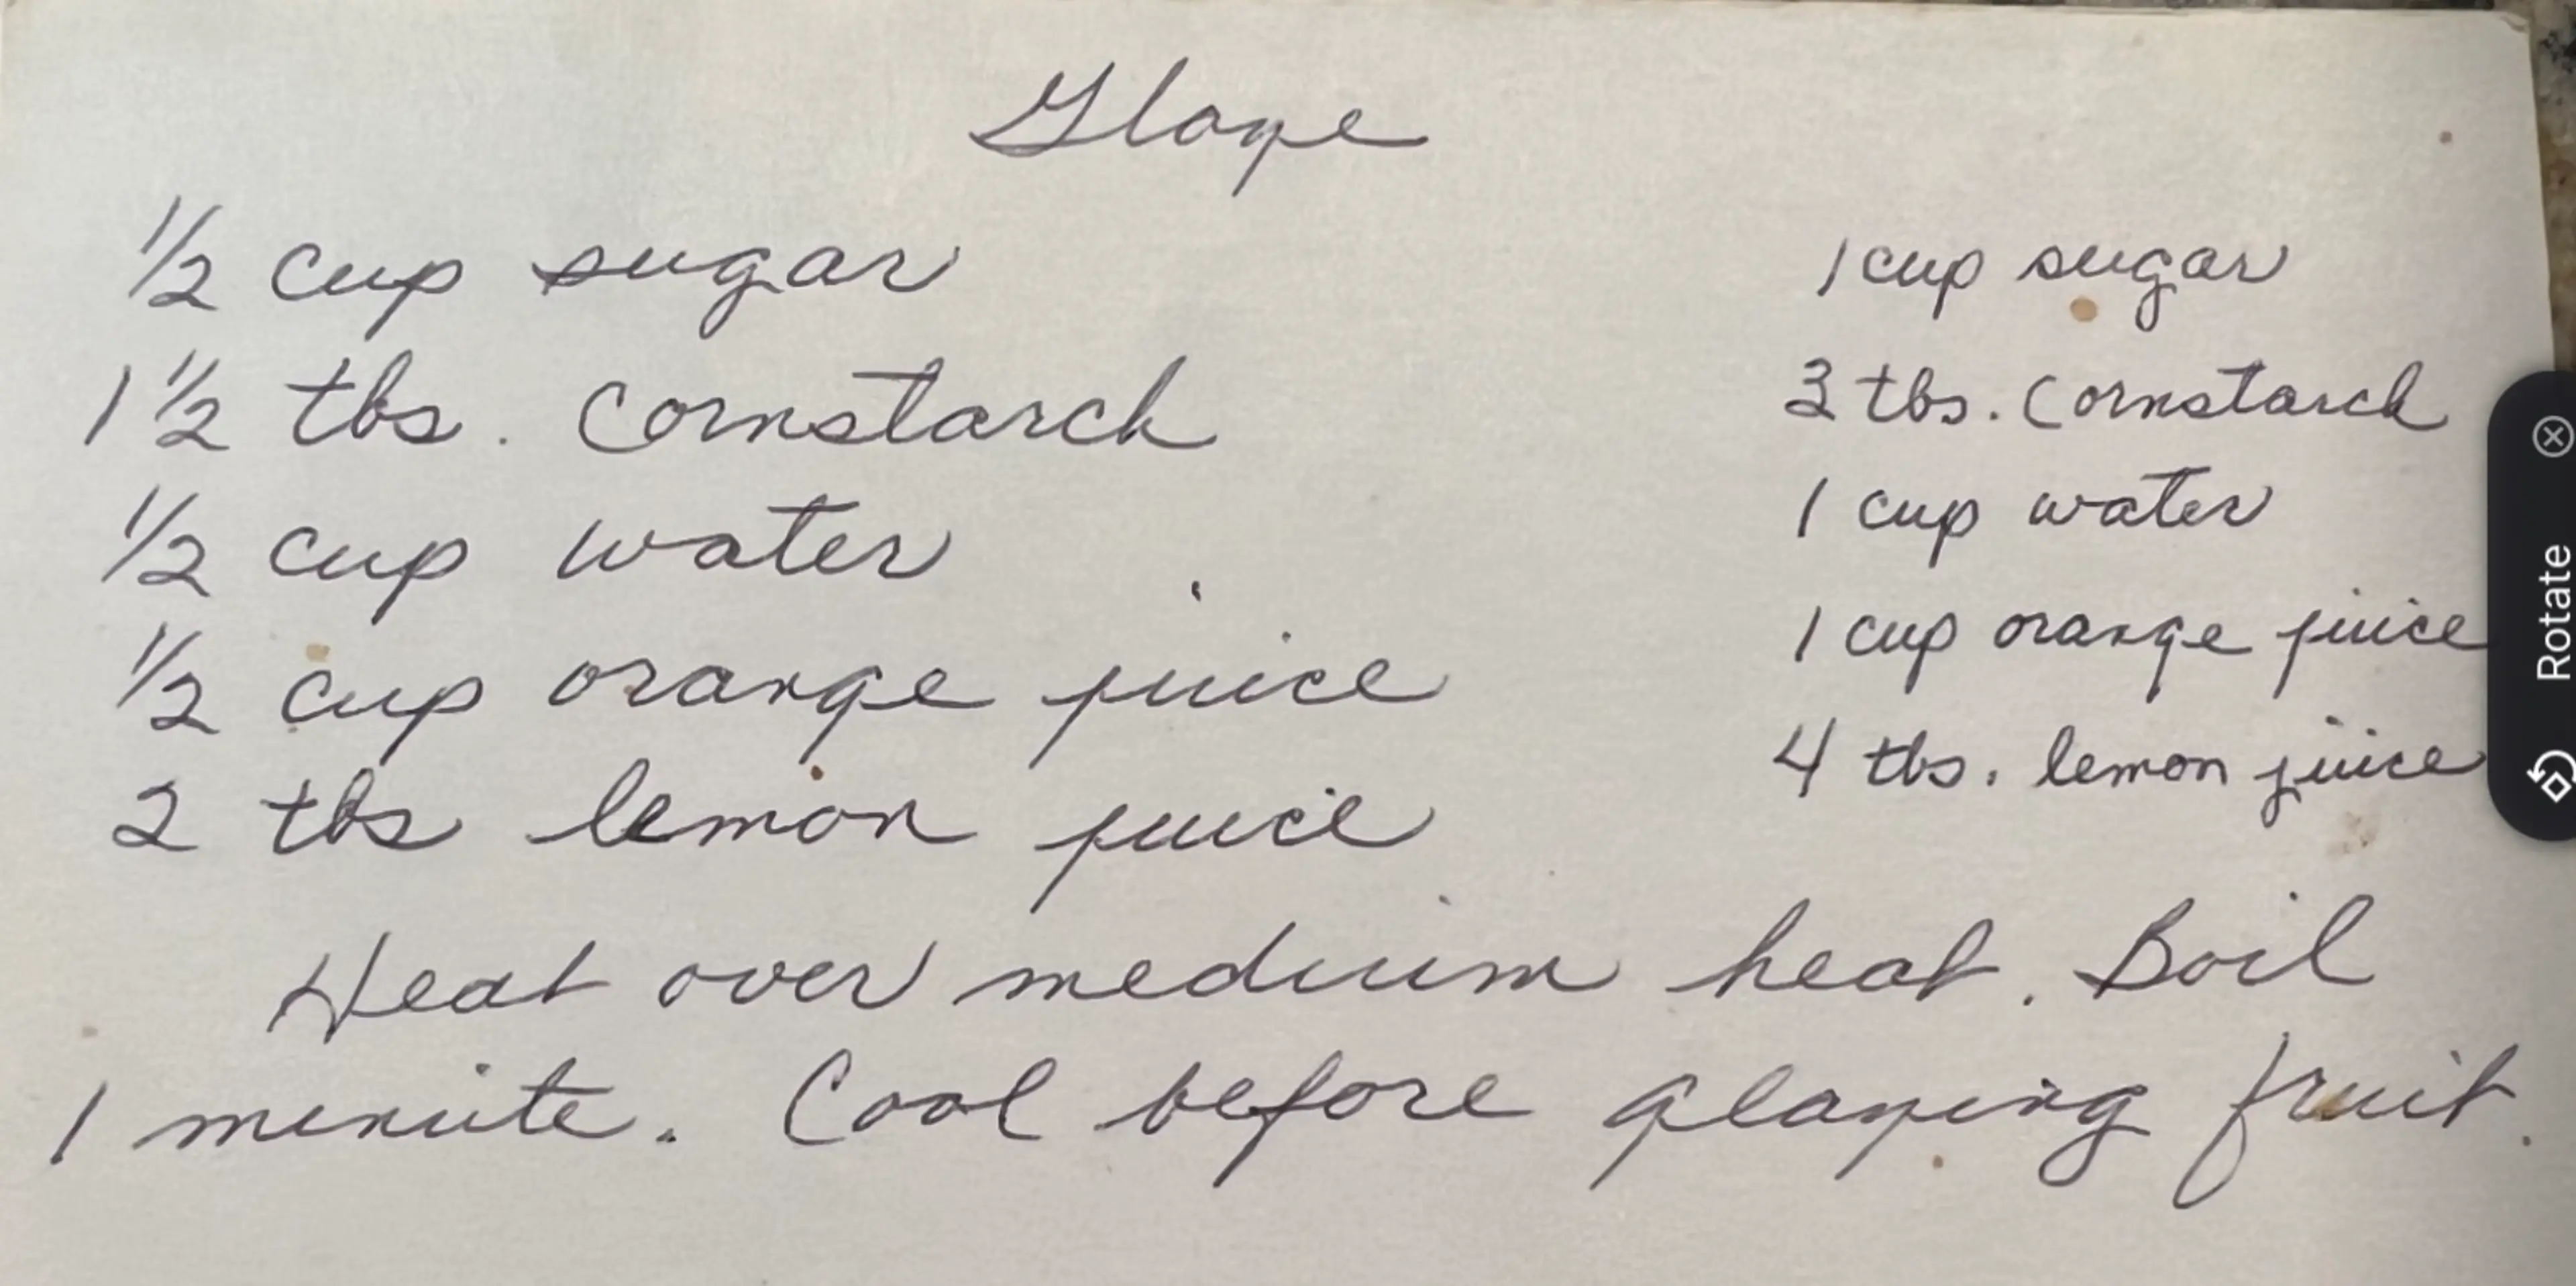 Glaze
½ cup sugar
1 ½ tbs. cornstarch
½ cup water
½ cup orange juice
2 tbs lemon juice
1 cup sugar
3 tbs. cornstarch
1 cup water
1 cup orange juice
4 tbs. lemon juice
Heat over medium heat. Boil
1 minute. Cool before glazing fruit.
Rotate